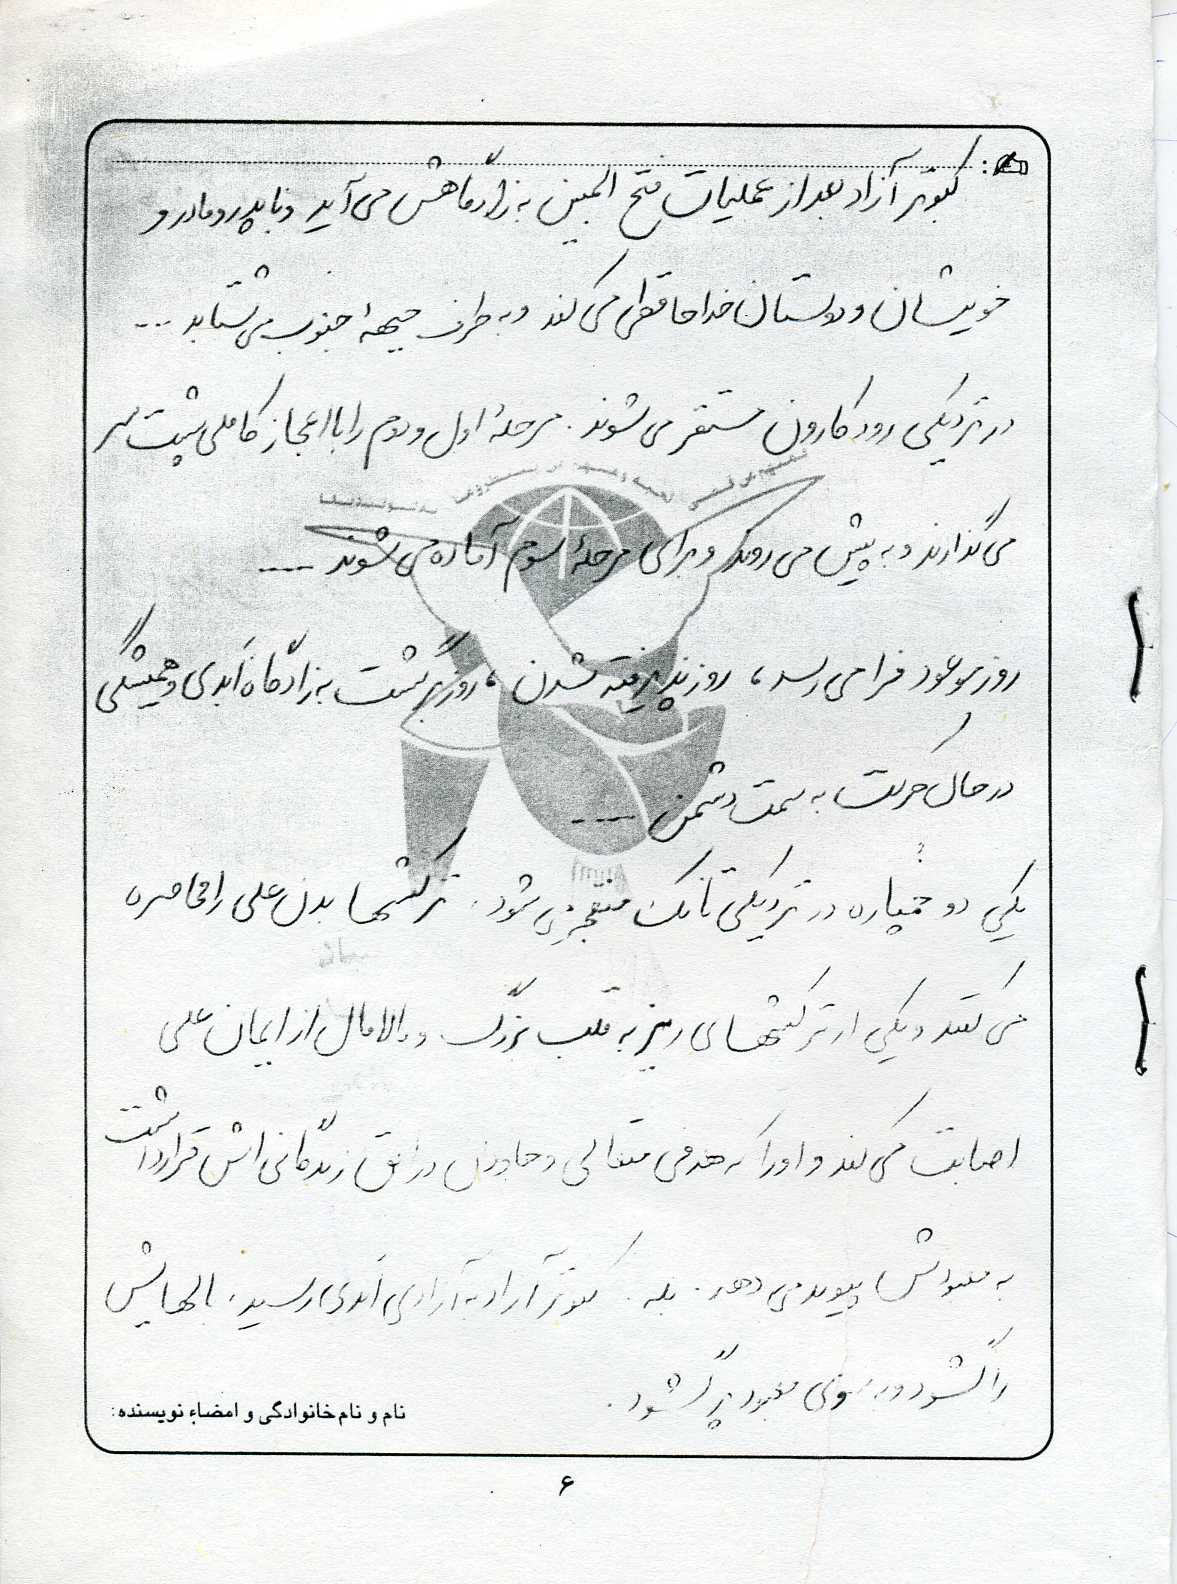 کبوتر آزاد بعد از عملیات فتح المبین به زادگاهش می آید و با پدر و مادر و
خویشان و دوستان خداحافظی می کند و به طرف جبههٔ جنوب می شتابد ...
در نزدیکی رود کارون مستقر می شوند. مرحلهٔ اول و دوم را با اعجاز کاملی پشت سر
می گذارند و به پیش می روند و برای مرحلهٔ سوم آماده می شوند ----
روز موعود فرا می رسد، روز پذیرفته شدن، روز برگشت به زادگاه ابدی و همیشگی
در حال حرکت به سمت دشمن ----
یکی دو خمپاره در نزدیکی تانک منفجر می شود. ترکشها بدن علی را محاصره
می کنند و یکی از ترکشهای ریز به قلب بزرگ و مالامال از ایمان علی
اصابت می کند و او را که هدفی متعالی و جاودان در افق زندگانی اش قرار داشت
به معبودش پیوند می دهد. بله. کبوتر آزاد به آزادی ابدی رسید. بالهایش
را گشود و به سوی معبود پر گشود.
نام و نام خانوادگی و امضاء نویسنده:
۶